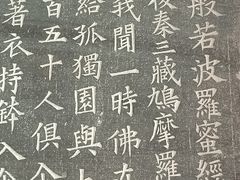 般若波羅蜜經
後秦三藏鳩摩羅
我聞一時佛在
給孤獨園與
百五十人俱
著衣持鉢入